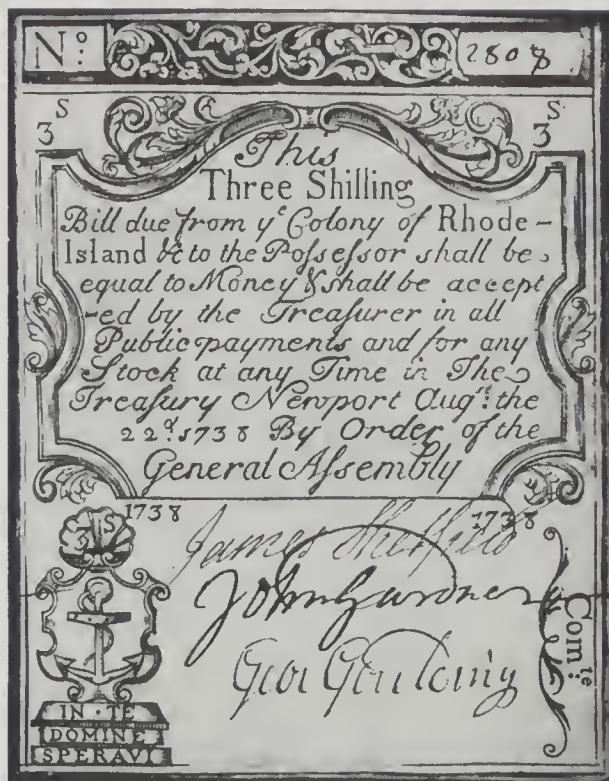 Nº: 2808
3 S 3 S
This
Three Shilling
Bill due from yᵉ Colony of Rhode-
Island &c to the Poſseſsor shall be
equal to Money & shall be accept
-ed by the Treaſurer in all
Public payments and for any
Stock at any Time in The
Treaſury Newport Augˢᵗ: the
22ᵈ. 1738 By Order of the
General Aſsembly
1738 1738
3 S
James Sheffield
John Gardner
Geo: Goulding
Comᵗᵉ:
IN · TE
DOMINE
SPERAVI